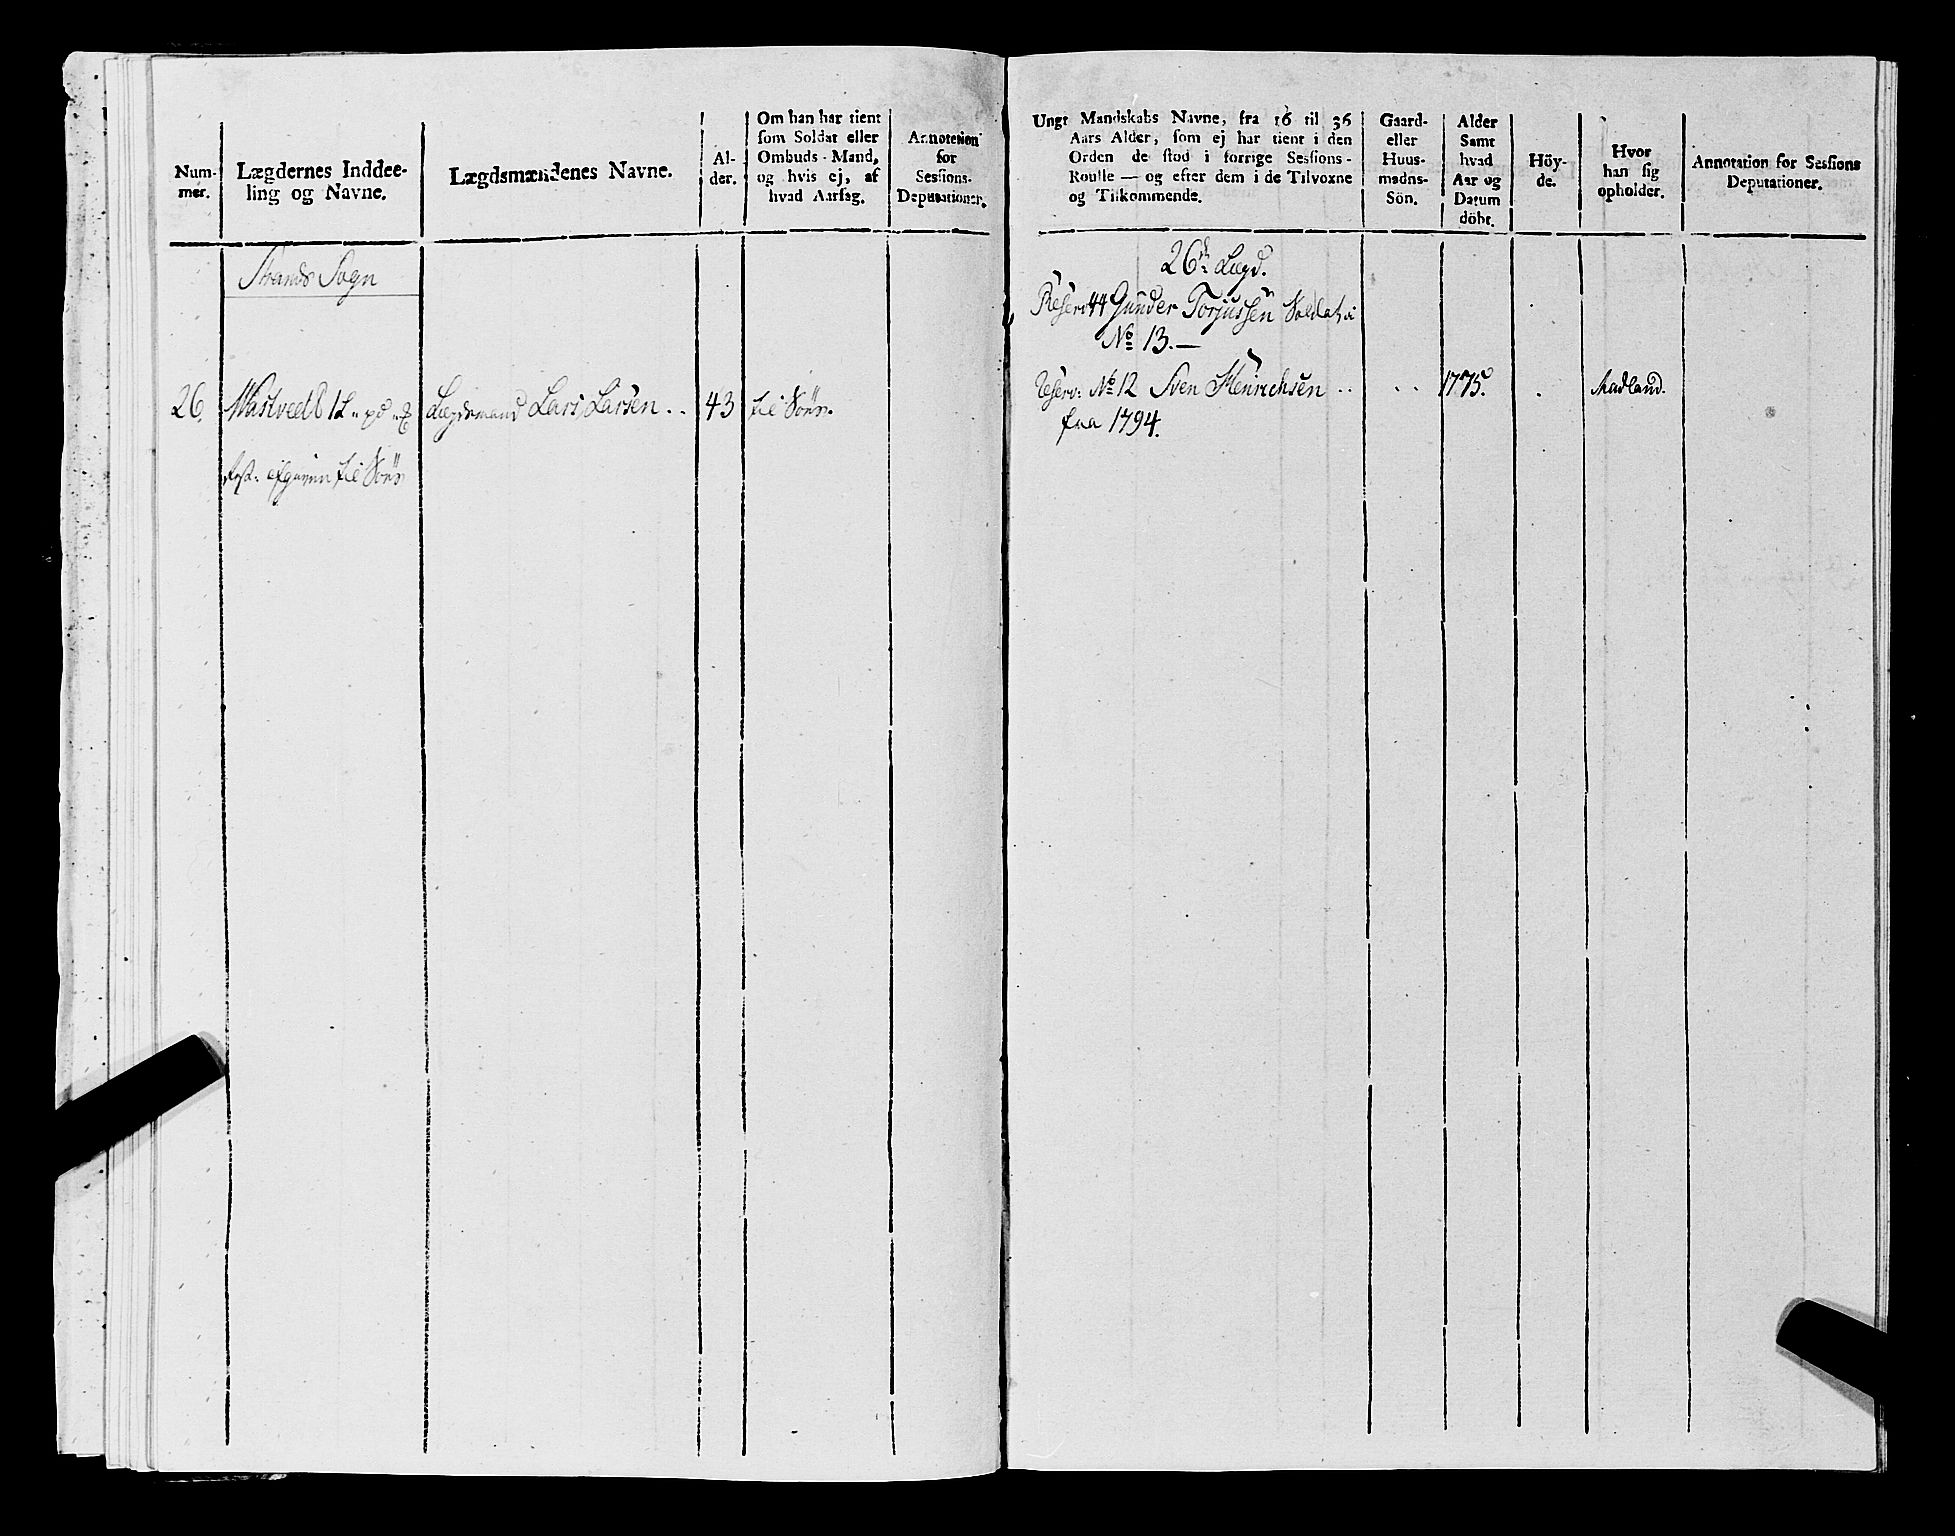 Num-
mer.
Lægdernes Inddee-
ling og Navne.
Lægdsmændenes Navne.
Al-
der.
Om han har tient
som Soldat eller
Ombuds-Mand,
og hvis ej, af
hvad Aarsag.
Annotation
for
Sessions-
Deputationer.
Strands Sogn
26.
Wastvedt 1
Lægdsmand Lars Larsen . .
43
til Søes.
til Søes
Ungt Mandskabs Navne, fra 16 til 36
Aars Alder, som ej har tient i den
Orden de stod i forrige Sessions-
Roulle — og efter dem i de Tilvoxne
og Tilkommende.
Gaard-
eller
Huus-
mands-
Sön.
Alder
Samt
hvad
Aar og
Datum
döbt.
Höy-
de.
Hvor
han sig
opholder.
Annotation for Sessions
Deputationer.
26de Lægd.
Reserv 44 Gunder Torjussen Soldat i
No 13. —
Reserv: No 12 Sven Henrichsen . .
. .
1775.
.
Madland.
fra 1794.